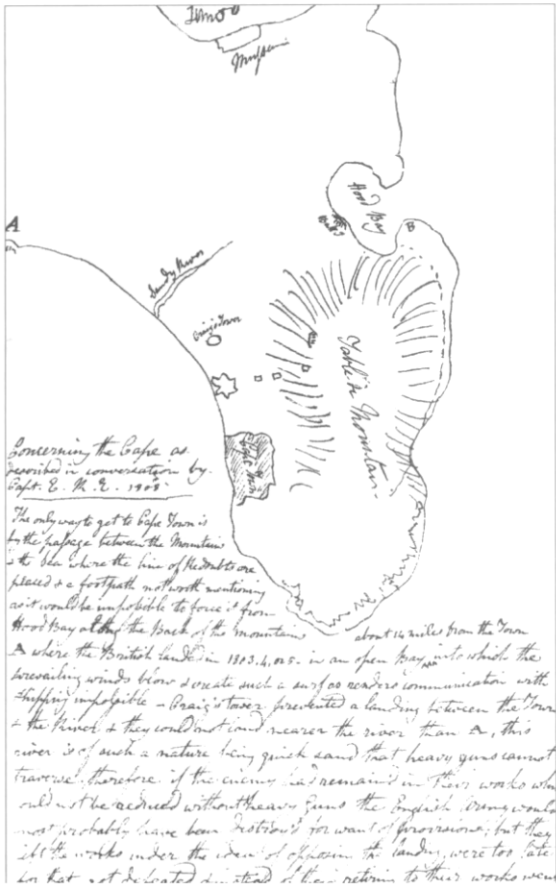 Simo
A
Hood Bay
B
Sandy River
Craig's Town
Table Mountain
Cape Town
Concerning the Cape as
described in conversation by
Capt. E. R. E. - 1808
The only way to get to Cape Town is
by the passage between the Mountain
& the Sea where the line of Redoubts are
placed & a footpath not worth mentioning
as it would be impossible to force it from
Hood Bay along the Back of the mountains about 14 miles from the Town
A where the British landed in 1803.4, or 5. in an open Bay, into which the
prevailing winds blow & create such a surf as renders communication with
Shipping impossible - Craig's tower prevented a landing between the Town
& the River & they could not land nearer the river than A, this
river is of such a nature being quick sand that heavy guns cannot
traverse, therefore if the enemy had remain'd in their works which
could not be reduced without heavy Guns the English Army would
most probably have been destroy'd for want of provisions; but they
left the works under the idea of opposing the landing, were too late
for that, not defeated & instead of their returning to their works went